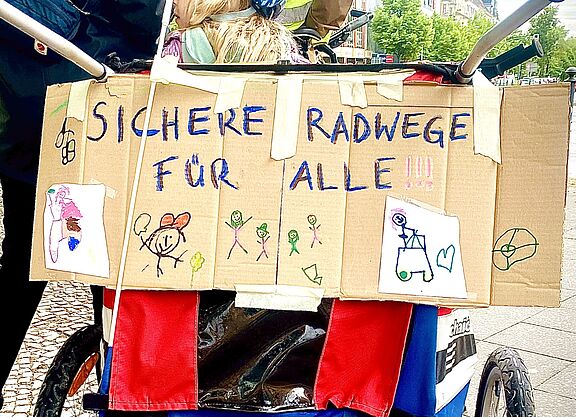 SICHERE RADWEGE
FÜR ALLE!!!